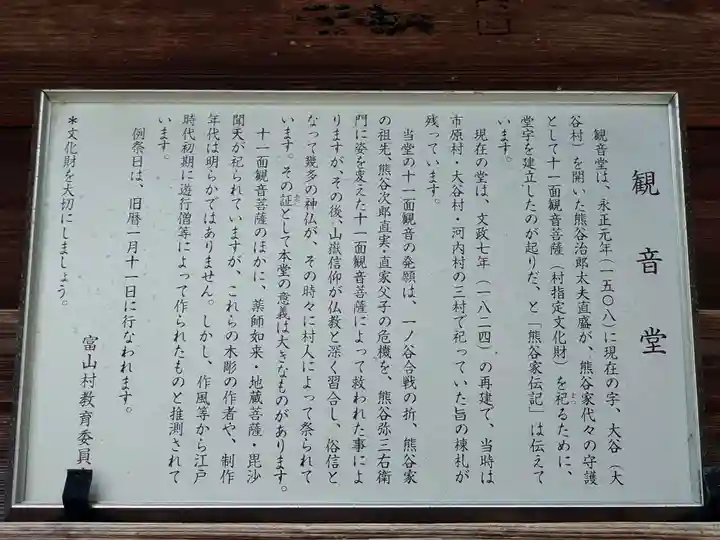 観音堂
観音堂は、永正元年(一五〇八)に現在の字、大谷(大
谷村)を開いた熊谷治郎太夫直盛が、熊谷家代々の守護
として十一面観音菩薩(村指定文化財)を祀るために、
堂宇を建立したのが起りだ、と「熊谷家伝記」は伝えて
います。
現在の堂は、文政七年(一八二四)の再建で、当時は
市原村・大谷村・河内村の三村で祀っていた旨の棟札が
残っています。
当堂の十一面観音の発願は、一ノ谷合戦の折、熊谷家
の祖先、熊谷次郎直実・直家父子の危機を、熊谷弥三右衛
門に姿を変えた十一面観音菩薩によって救われた事によ
りますが、その後、山嶽信仰が仏教と深く習合し、俗信と
なって幾多の神仏が、その時々に村人によって祭られて
います。その証として本堂の意義は大きなものがあります。
十一面観音菩薩のほかに、薬師如来・地蔵菩薩・毘沙
聞天が祀られていますが、これらの木彫の作者や、制作
年代は明らかではありません。しかし、作風等から江戸
時代初期に遊行僧等によって作られたものと推測されて
います。
例祭日は、旧暦一月十一日に行なわれます。
*文化財を大切にしましょう。
富山村教育委員